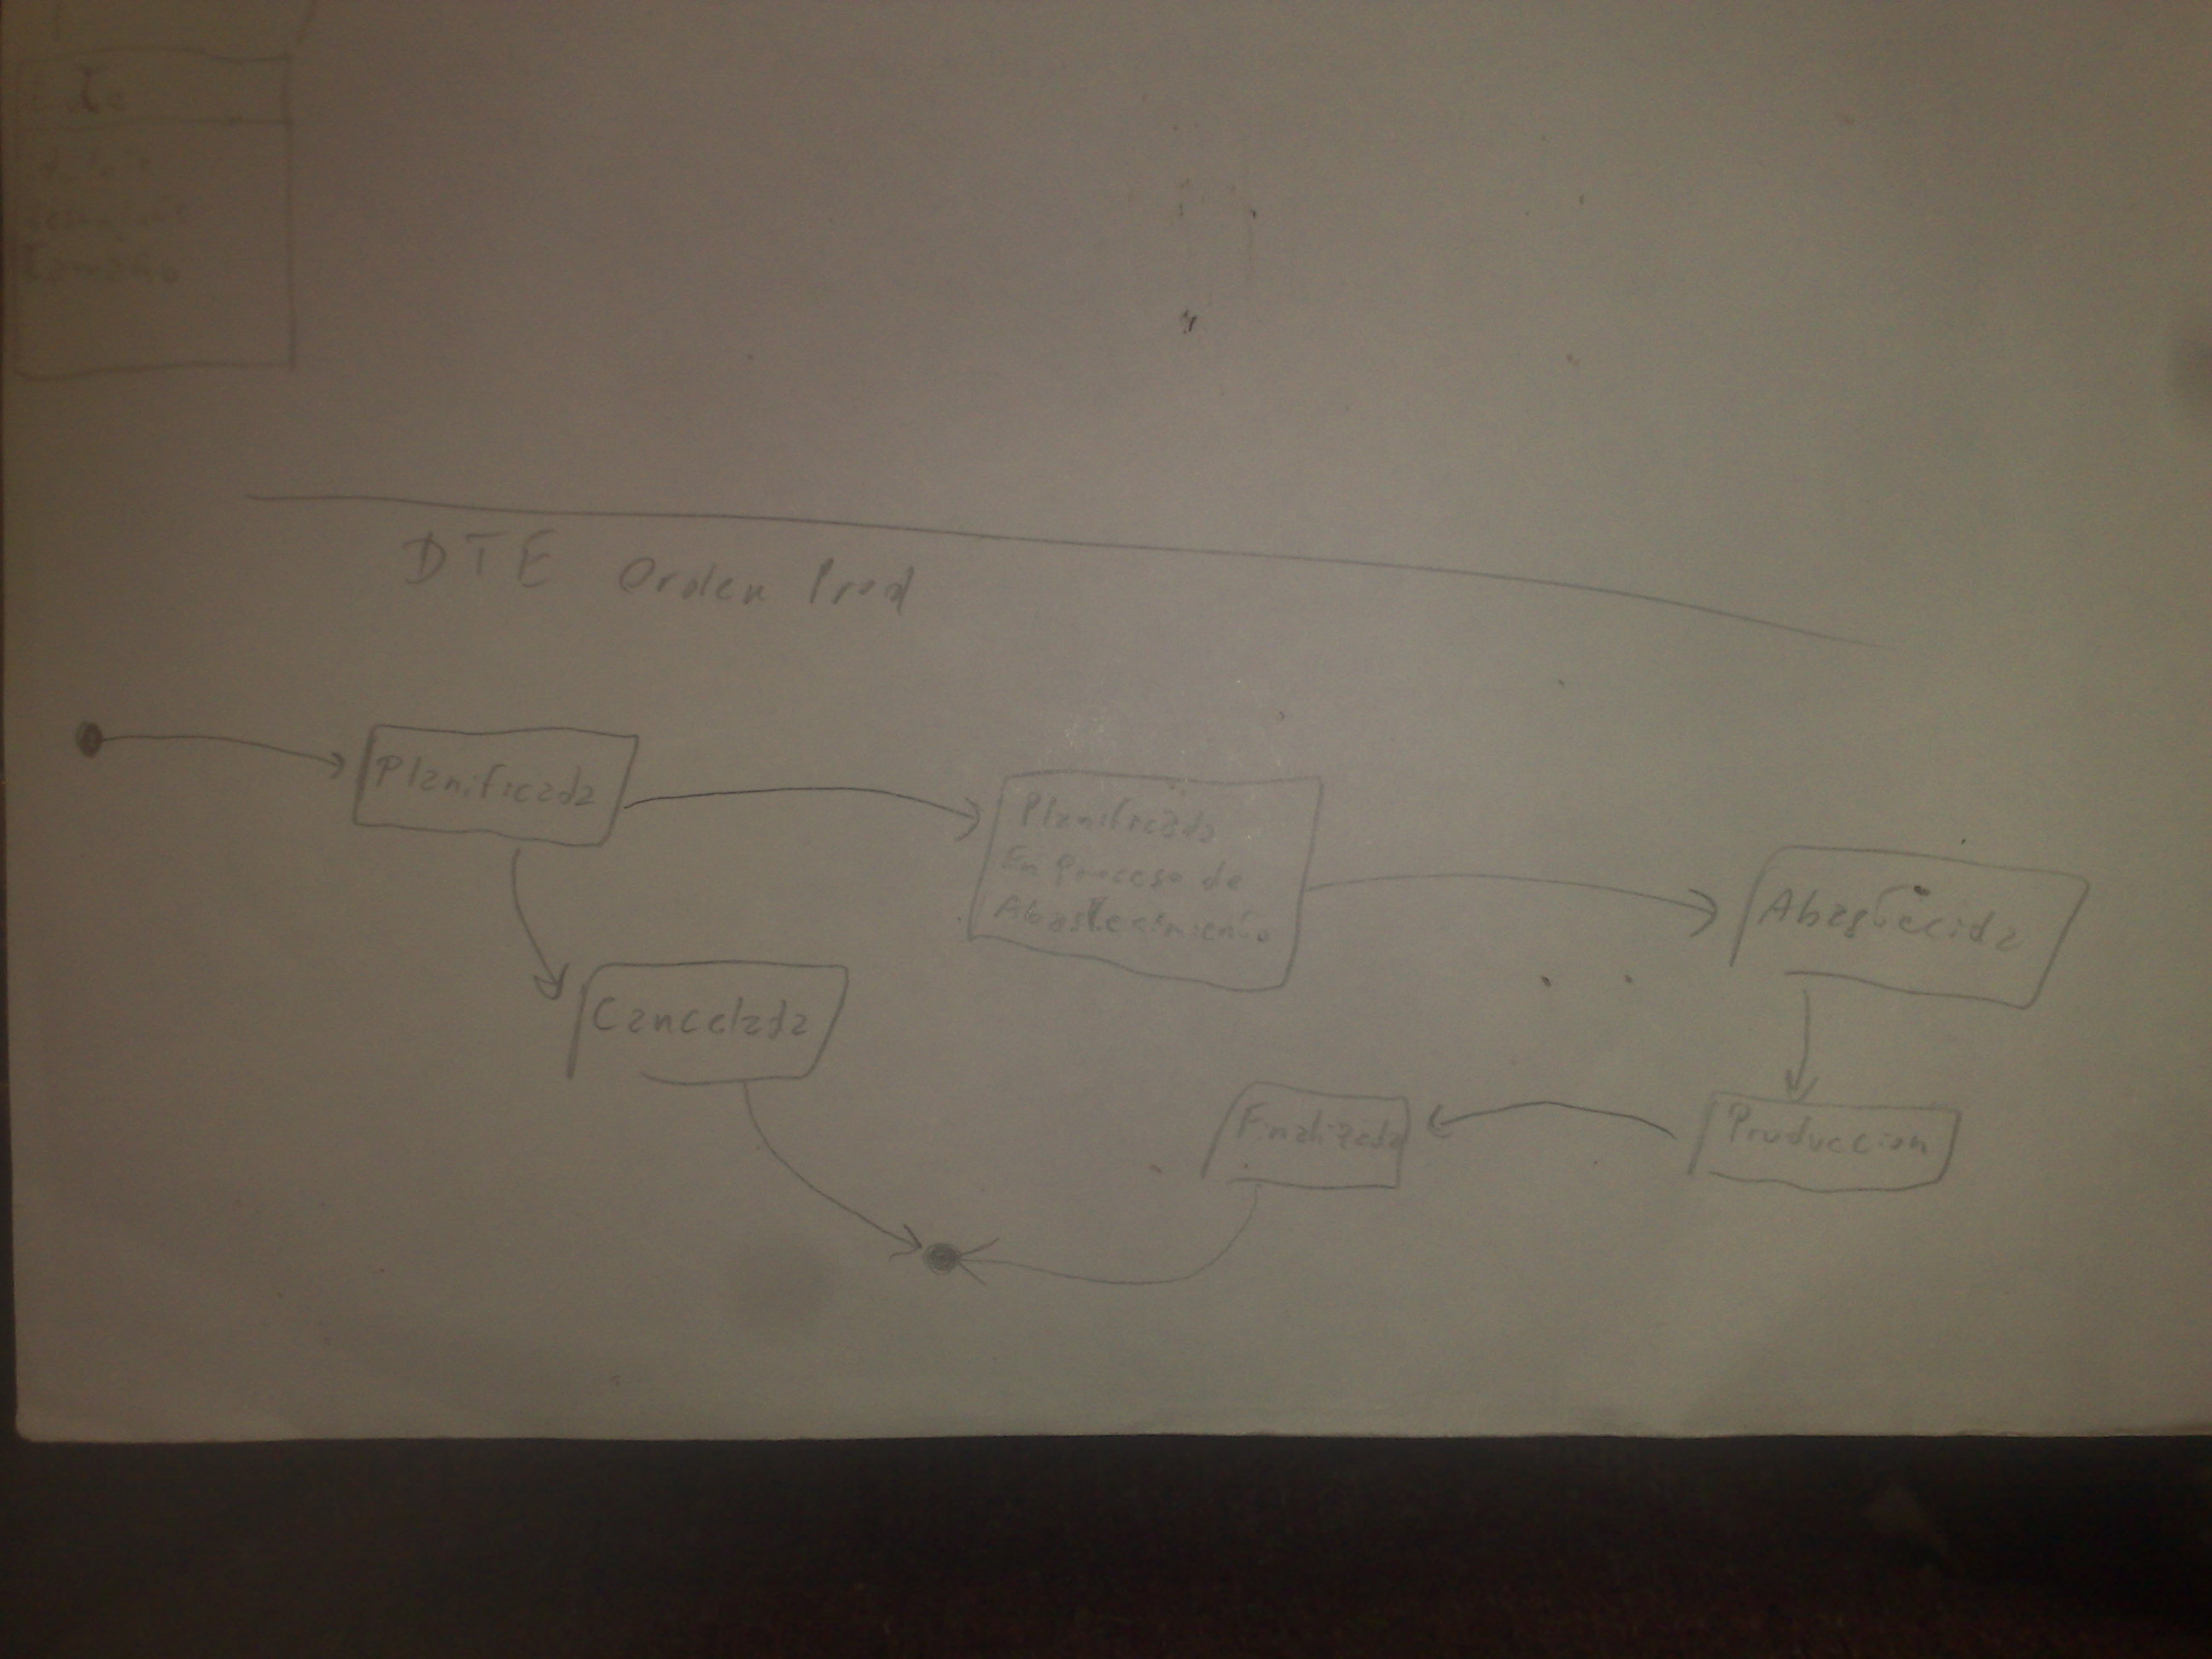 Tamaño
DTE Orden Prod
Planificada
Planificada
En Proceso de
Abastecimiento
Abastecida
Cancelada
Finalizada
Produccion